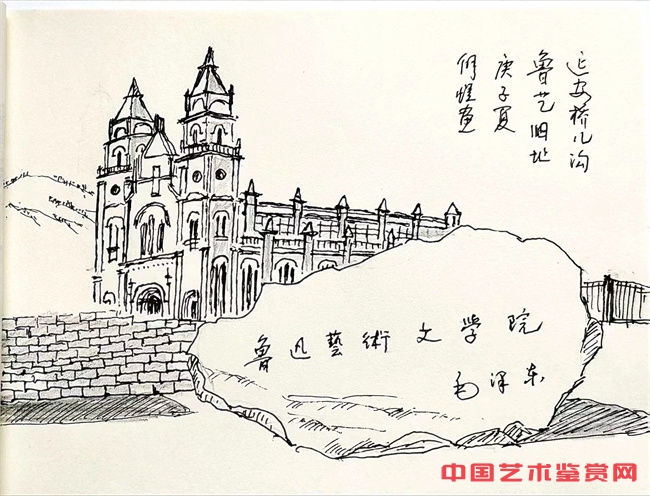 延安桥儿沟
鲁艺旧址
庚子夏
魯迅藝術文学院
毛泽东
中国艺术鉴赏网